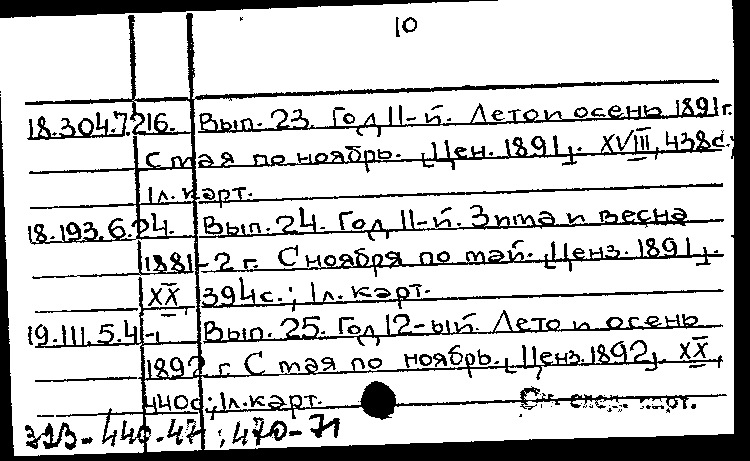 10
18.304.7.216. Вып. 23. Год 11-й. Лето и осень 1891 г.
С мая по ноябрь. [Цен. 1891]. XVIII, 438 с.;
1 л. карт.
18.193.6.24. Вып. 24. Год 11-й. Зима и весна
1881-2 г. С ноября по май. [Ценз. 1891].
XX, 394 с.; 1 л. карт.
19.III.5.4 Вып. 25. Год 12-ый. Лето и осень
1892 г. С мая по ноябрь. [Ценз. 1892]. XX,
440 с; 1 л. карт.
См. след. карт.
440-471; 470-71